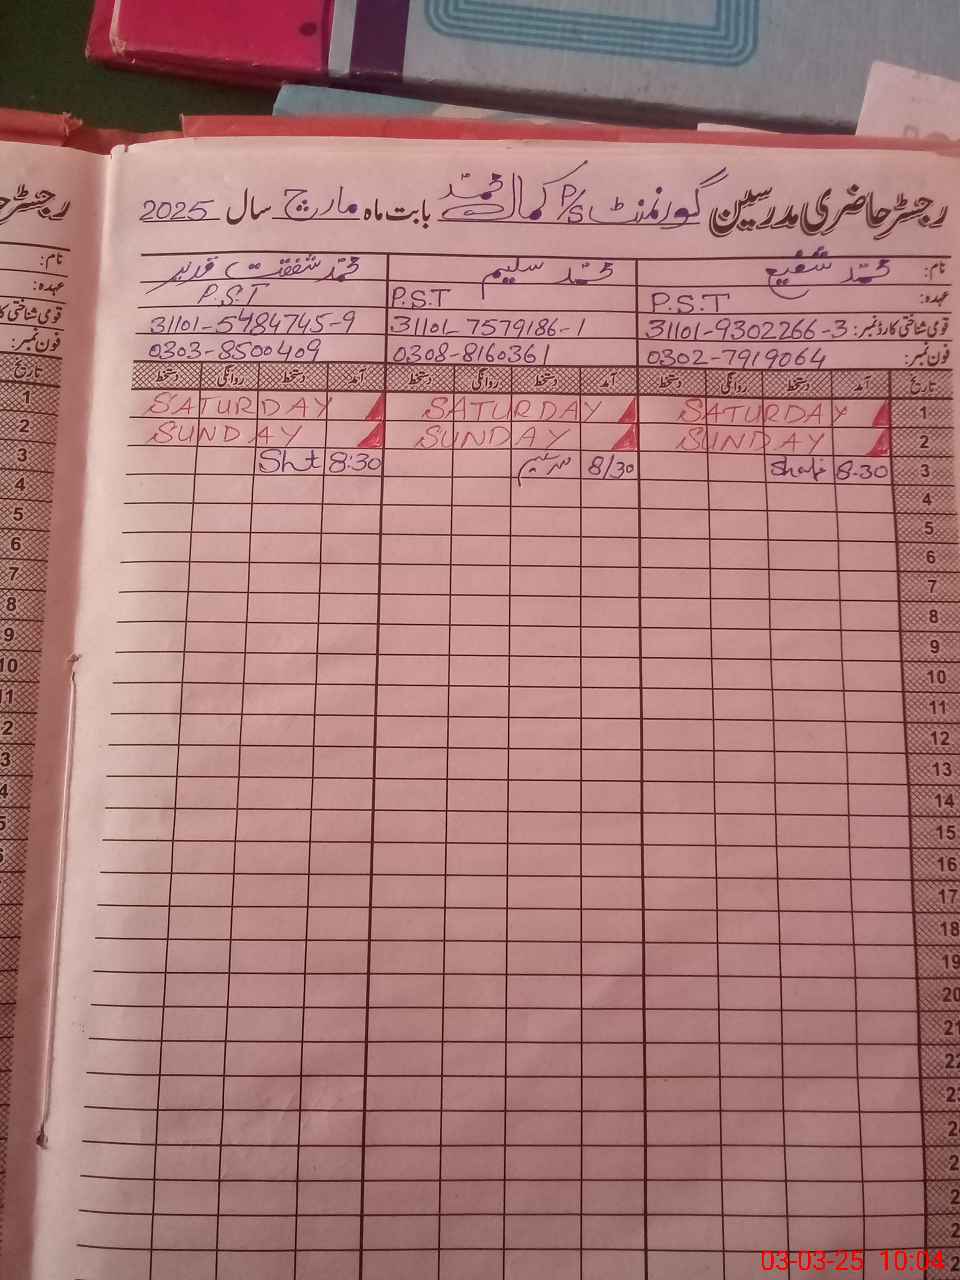 رجسٹر حاضری مدرسین گورنمنٹ P/S کمال محمد بابت ماہ مارچ سال 2025
نام: محمد شفیع محمد سلیم محمد شفقت قدیر
عہدہ: P.S.T P.S.T P.S.T
قومی شناختی کارڈ نمبر: 31101-9302266-3 31101-7579186-1 31101-5484745-9
فون نمبر: 0302-7919064 0308-8160361 0303-8500409
تاریخ آمد دستخط روانگی دستخط آمد دستخط روانگی دستخط آمد دستخط روانگی دستخط
1 SATURDAY SATURDAY SATURDAY
2 SUNDAY SUNDAY SUNDAY
3 8.30 8/30 8:30 Sht
4
5
6
7
8
9
10
11
12
13
14
15
16
17
18
19
20
21
22
رجسٹر
نام:
عہدہ:
فون نمبر:
تاریخ
1
2
3
4
5
6
7
8
9
10
11
03-03-25 10:04